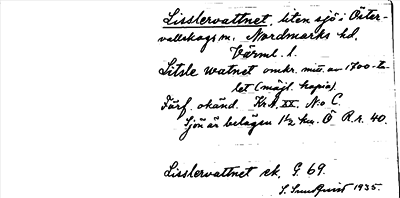 Lisslervattnet, liten sjö i Öster-
vallskogs sn, Nordmarks hd,
Värml. l.
Litsle watnet omkr. mitt. av 1700-ta-
let (möjl. kopia).
Förf. okänd. Kr. A. XX. No C.
Sjön är belägen 1½ km. Ö R.r. 40.
Lisslervattnet ek. G. 69.
S. Sundquist 1935.